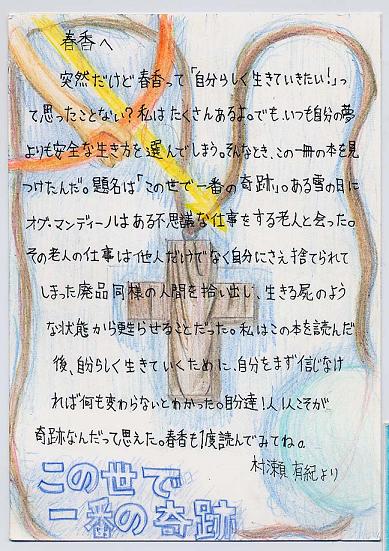 春香へ
突然だけど春香って「自分らしく生きていきたい!」っ
て思ったことない?私はたくさんあるよ。でも、いつも自分の夢
よりも安全な生き方を選んでしまう。そんなとき、この一冊の本を見
つけたんだ。題名は「この世で一番の奇跡」。ある雪の日に
オグ・マンディーノはある不思議な仕事をする老人と会った。
その老人の仕事は他人だけでなく自分にさえ捨てられて
しまった廃品同様の人間を拾い出し、生きる屍のよう
な状態から甦らせることだった。私はこの本を読んだ
後、自分らしく生きていくために、自分をまず信じなけ
れば何も変わらないとわかった。自分達1人1人こそが
奇跡なんだって思えた。春香も1度読んでみてね。
村瀬有紀より
この世で
一番の奇跡